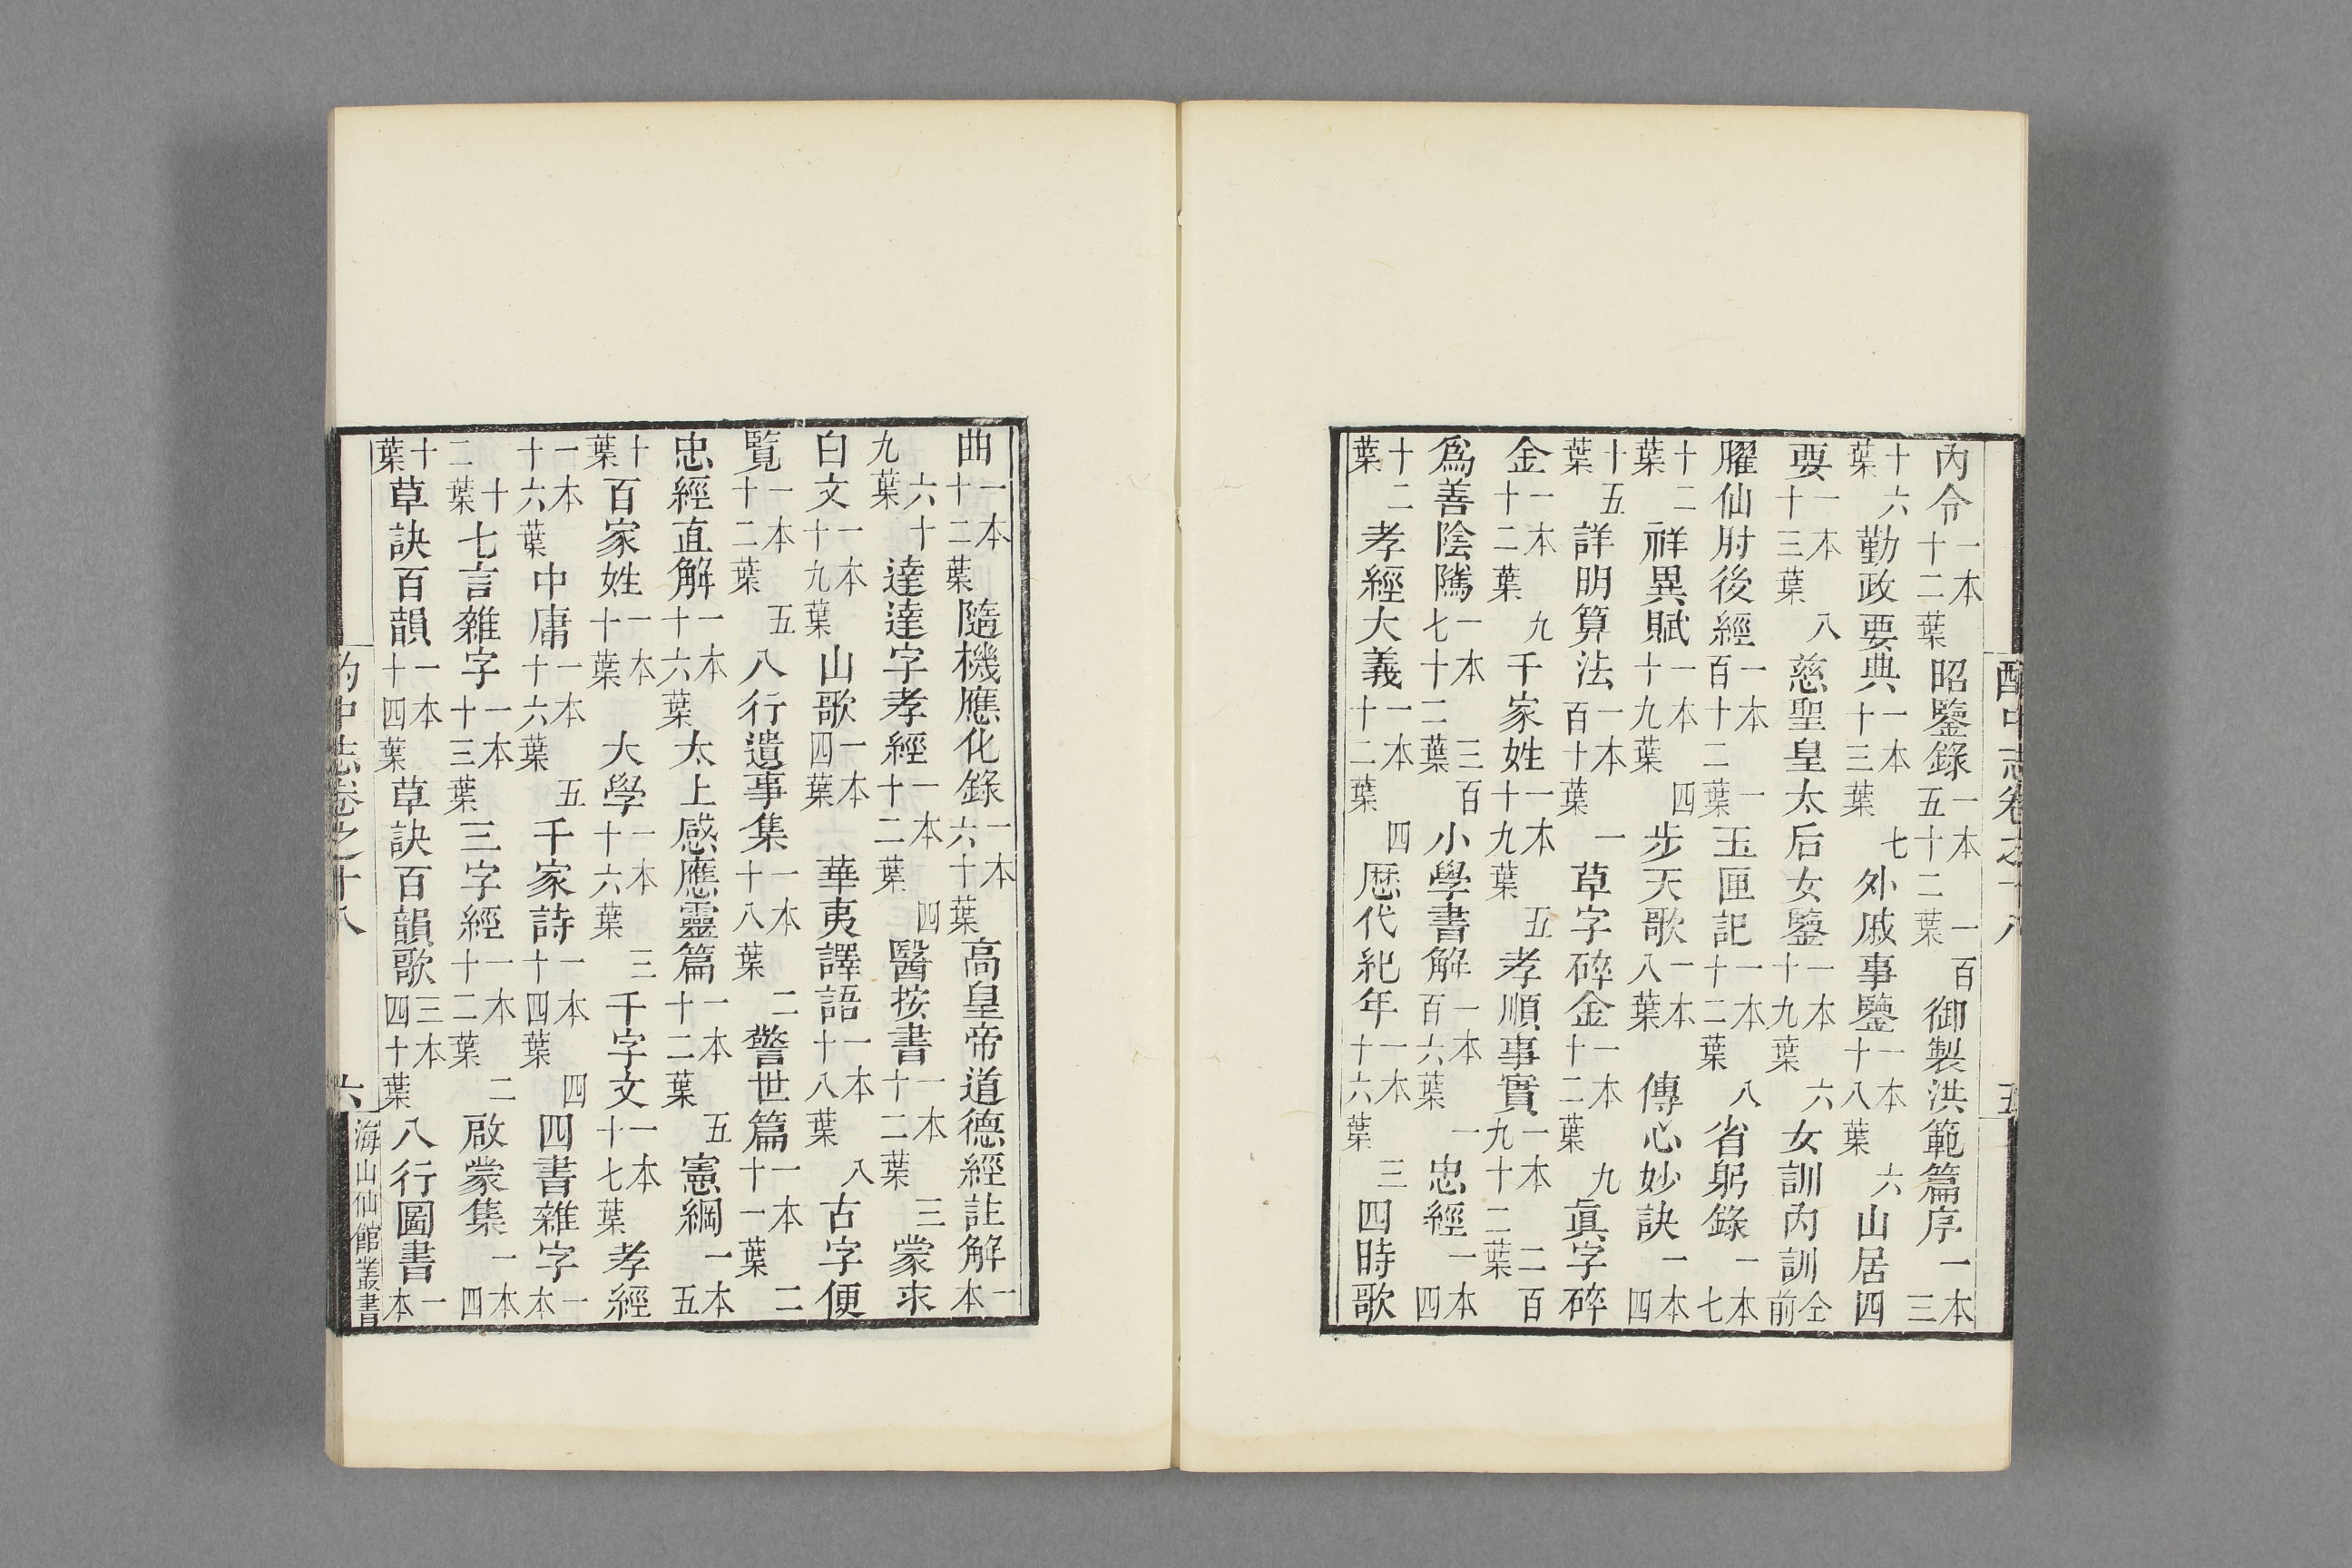 酌中志卷之十八 五
內令一本十二葉昭鑒錄一本一百五十二葉御製洪範篇序一本三
十六葉勤政要典一本七十三葉外戚事鑒一本六十八葉山居四
要一本八十三葉慈聖皇太后女鑒一本六十九葉女訓內訓仝前
臞仙肘後經一本一百十二葉玉匣記一本八十二葉省躬錄一本七
十二葉祥異賦一本四十九葉步天歌一本八葉傳心妙訣一本四
十五葉詳明算法一本一百十葉草字碎金一本九十二葉眞字碎
金一本九十二葉千家姓一本五十九葉孝順事實一本二百九十二葉
爲善陰隲一本三百七十二葉小學書解一本一百六葉忠經一本四
十二葉孝經大義一本四十二葉歷代紀年一本三十六葉四時歌
曲一本十二葉隨機應化錄一本六十葉高皇帝道德經註解一本
六十九葉達達字孝經一本四十二葉醫按書一本三十二葉蒙求
白文一本十九葉山歌一本四葉華夷譯語一本八十八葉古字便
覽一本五十二葉八行遺事集一本二十八葉警世篇一本二十一葉
忠經直解一本十六葉太上感應靈篇一本五十二葉憲綱一本五
十葉百家姓一本十葉大學一本三十六葉千字文一本十七葉孝經
一本十六葉中庸一本五十六葉千家詩一本四十四葉四書雜字一本
十二葉七言雜字一本十三葉三字經一本二十二葉啟蒙集一本四
十葉草訣百韻一本十四葉草訣百韻歌三本四十葉八行圖書一本
酌中志卷之十八 六 海山仙館叢書